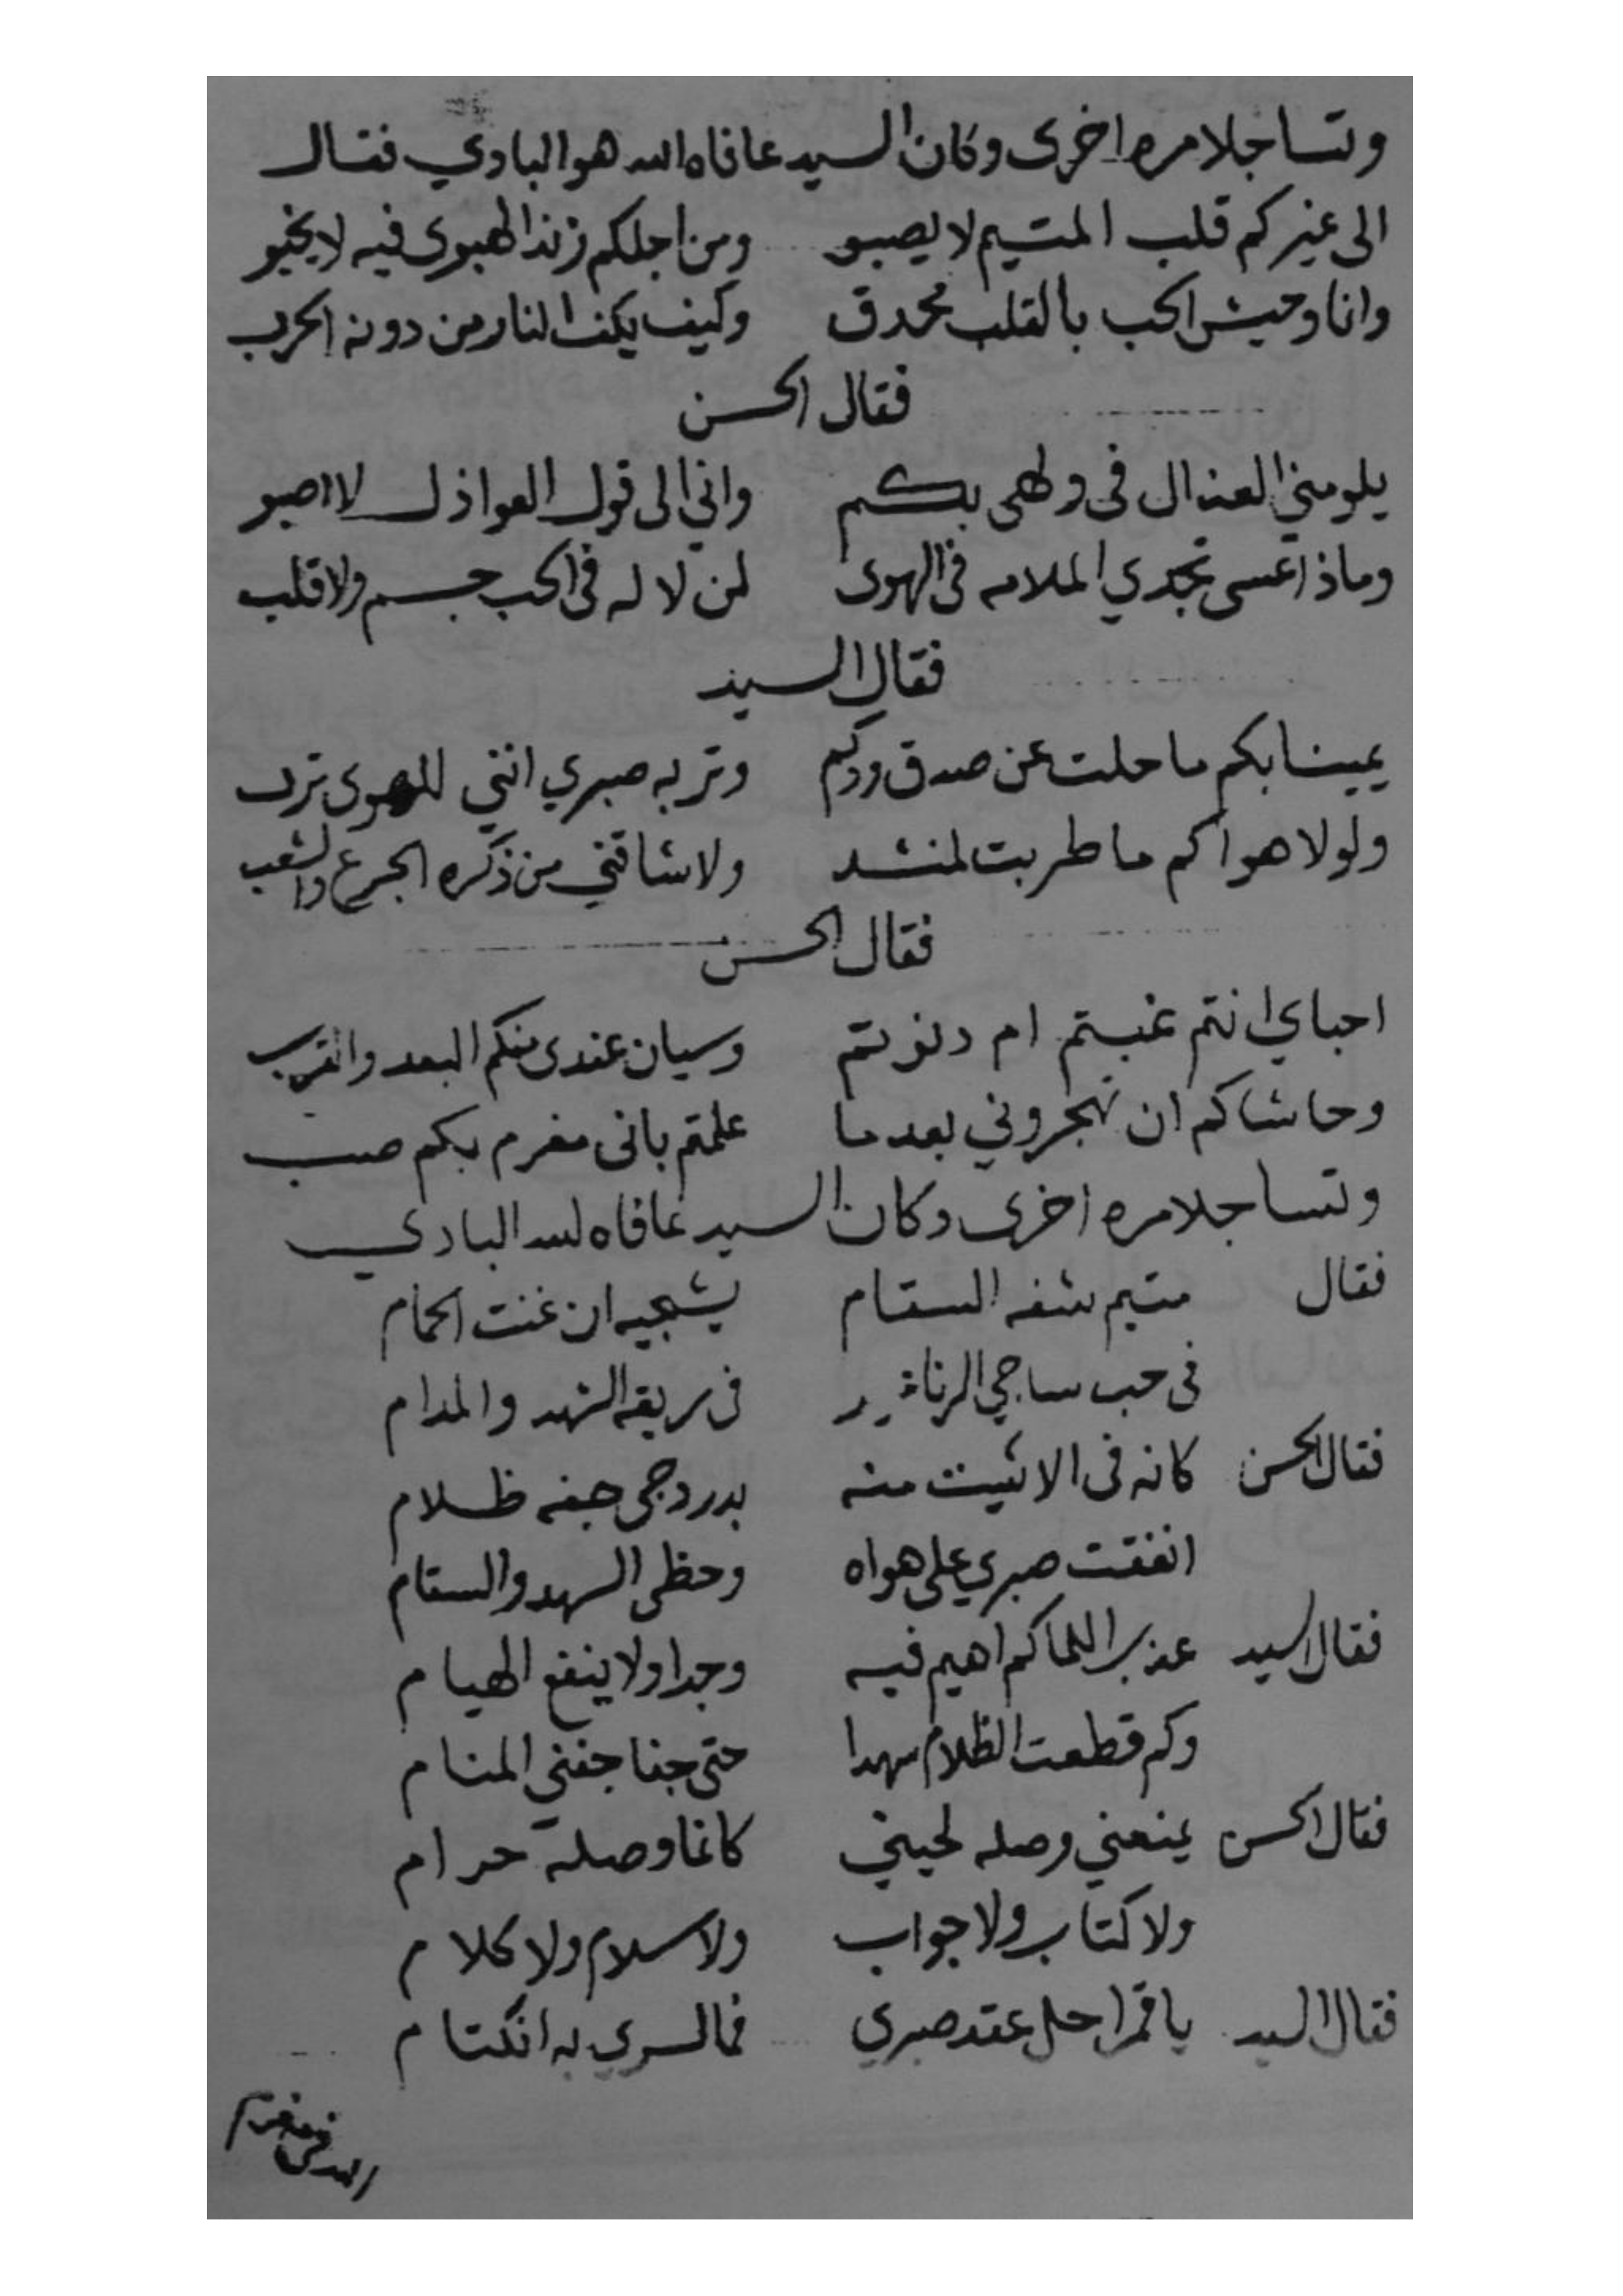 وتساجلا مره اخرى وكان السيد عافاه الله هو البادي فقال
الى غيركم قلب المتيم لا يصبو ومن اجلكم زند الهوى فيه لا يخبو
وانا وجيش الحب بالقلب محدق وكيف يكف النار من دونه الحرب
فقال الحسن
يلومني العذال في ولهى بكم واني الى قول العواذل لا اصبو
وماذا عسى تجدي الملامه في الهوى لمن لا له في الحب جسم ولا قلب
فقال السيد
يمينا بكم ما حلت عن صدق ودكم وتربه صبري انني للهوى ترب
ولولا هواكم ما طربت لمنشد ولا شاقني من ذكره الجرع والشعب
فقال الحسن
احباي انتم غبتم ام دنوتم وسيان عندى منكم البعد والقرب
وحاشاكم ان تهجروني بعد ما علمتم بانى مغرم بكم صب
وتساجلا مره اخرى وكان السيد عافاه الله البادي
فقال متيم شفه السقام يشجيه ان غنت الحمام
فى حب ساجي الرنا غرير فى ريقه الشهد والمدام
فقال الحسن كانه فى الاثيث منه بدر دجى حفه ظلام
انفقت صبري على هواه وحظى السهد والسقام
فقال السيد عذب اللما كم اهيم فيه وجدا ولا ينفع الهيام
وكم قطعت الظلام سهدا حتى جفا جفني المنام
فقال الحسن يمنعني وصله لحيني كانما وصله حرام
ولا كتاب ولا جواب ولا سلام ولا كلام
فقال السيد يا قمرا حل عقد صبري فما لسري به انكتام